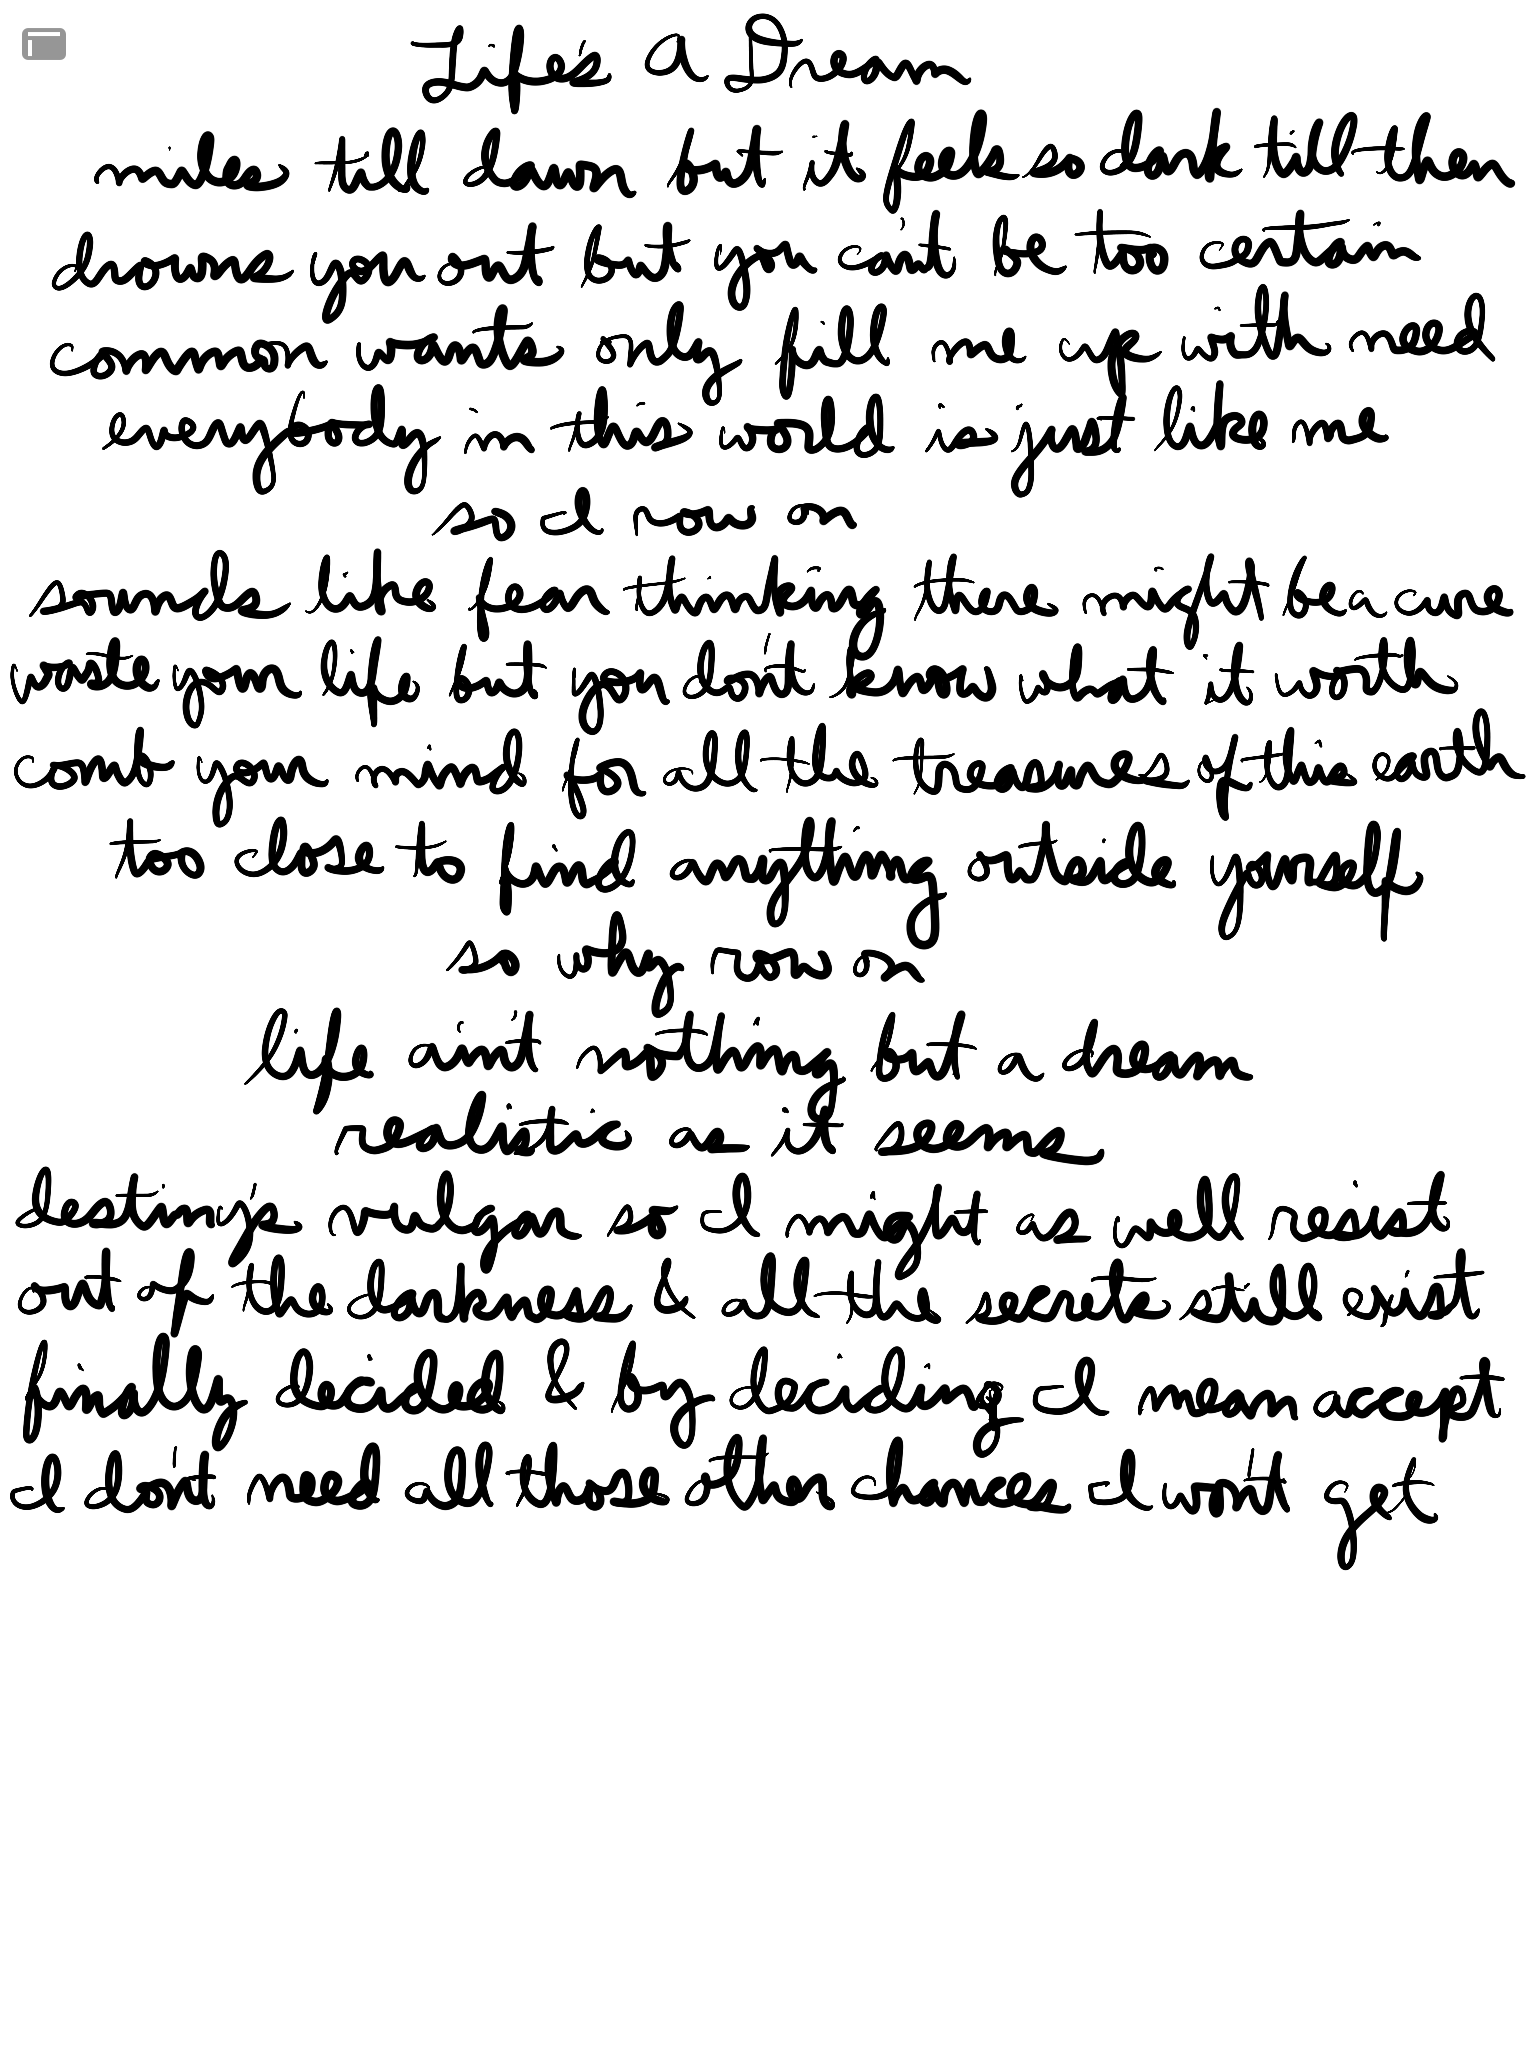 Life's A Dream
miles till dawn but it feels so dark till then
drowns you out but you can't be too certain
common wants only fill me up with need
everybody in this world is just like me
so I row on
sounds like fear thinking there might be a cure
waste your life but you don't know what it worth
comb your mind for all the treasures of this earth
too close to find anything outside yourself
so why row on
life ain't nothing but a dream
realistic as it seems
destiny's vulgar so I might as well resist
out of the darkness & all the secrets still exist
finally decided & by deciding I mean accept
I don't need all those other chances I won't get